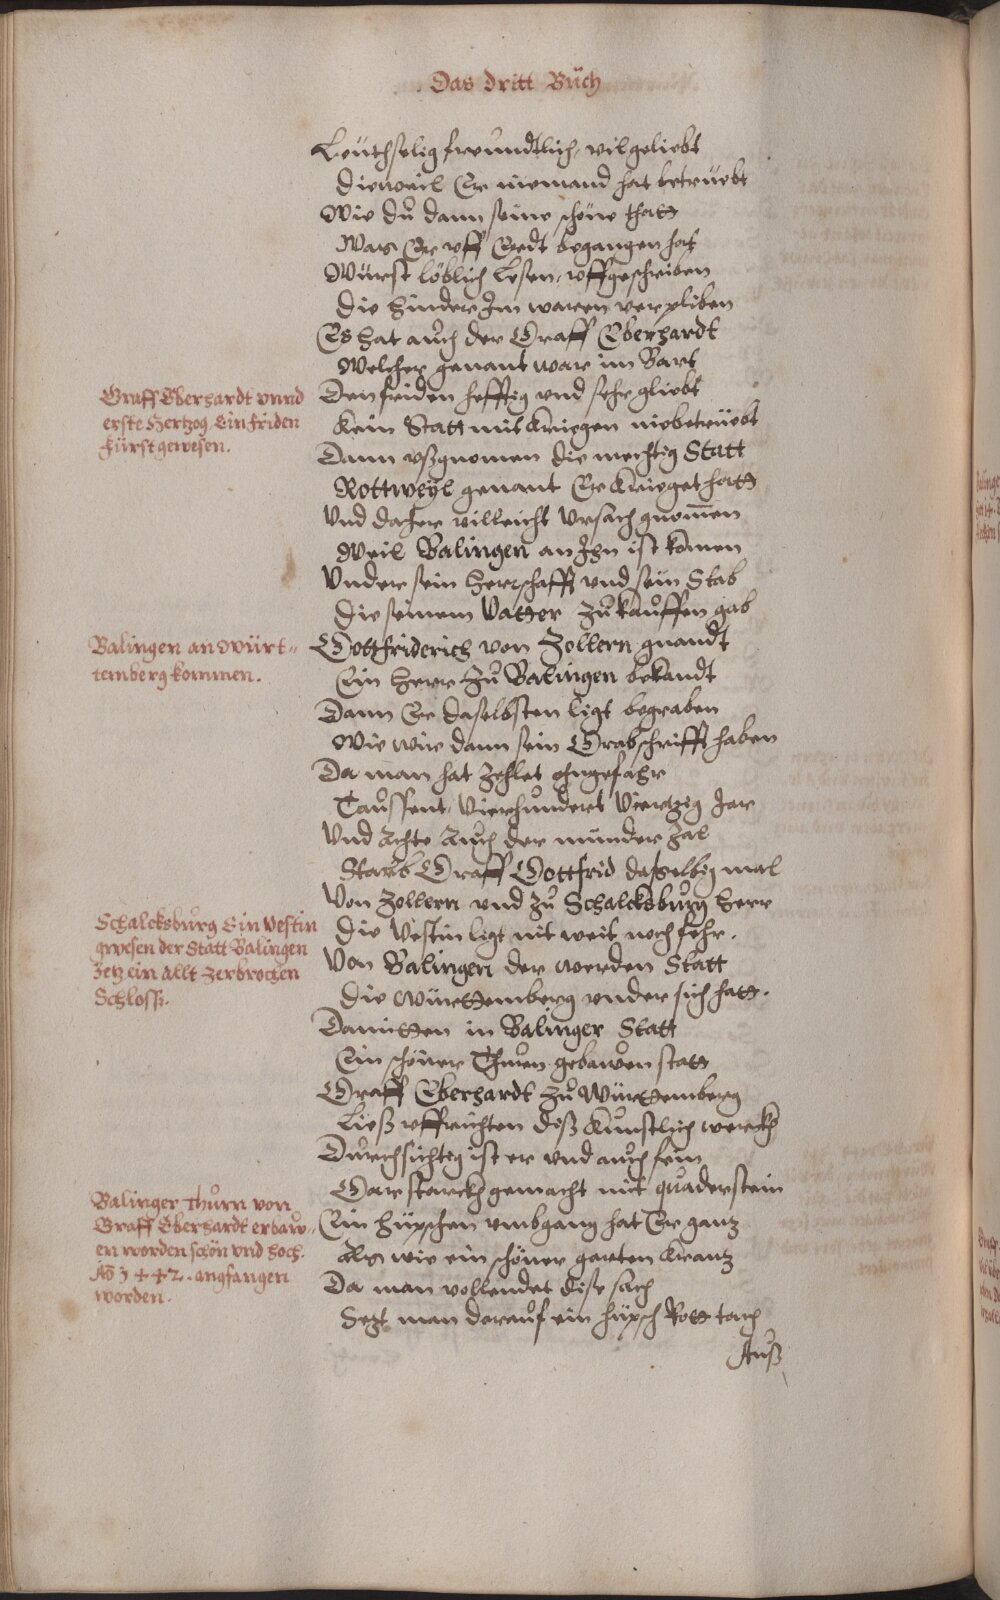 Das dritt Bůch
Leüthselig freundtlich, vilgeliebt
Dieweil Er niemand hat betrüebt
Wie dů dann seine schöne thatt
Was Er uff Erdt begangen hatt
Würst löblich Lesen, uffgeschriben
Die hinder Im waren verpliben
Es hat aůch der Graff Eberhardt
Welcher genant war im Bart
Den friden hefftig und sehr gliebt
Kein Statt mit Kriegen nie betrüebt
Dann ußgnomen die mechtig Statt
Rottweyl genant Er Krieget hatt
Und daher villeicht Ursach gnom̄en
Weil Balingen an Ihn ist komen
Under sein Herrschafft und sein Stab
Die seinem Vatter zů kaůffen gab
Gottfriderich von Zollern gnandt
Ein Herr zů Balingen bekandt
Dann Er daselbsten ligt begraben
Wie wir dann sein Grabschrifft haben
Da man hat zehlet ohngefahr
Taůssent, Vierhůndert Viertzig Jar
Und Achte Aůch der minder Zal
Starb Graff Gottfrid daselbig mal
Von Zollern und zů Schalcksbůrg Herr
Die Vestin ligt nit weit noch fehr.
Von Balingen der werden Statt
Die Württemberg under sich hatt.
Damitten in Balinger Statt
Ein schöner Thůrn gebawen statt
Graff Eberhardt zů Württemberg
Ließ uffrichten diß Kůnstlich werckh
Důrchsichtig ist er und aůch fein
Gar starckh gemacht mit qůaderstein
Ein hüpschen umbgang hat Er gantz
Als wie ein schöner garten Krantz
Da man vollendet dise sach
Setzt man daraůf ein hüpsch Rott tach
Aůß
Graff Eberhardt unnd
erste Hertzog, Ein friden
fürst gewesen.
Balingen an Würt-
temberg kommen.
Schalcksbůrg Ein Vestin
gwesen der Statt Balingen
Jetz ein Allt Zerbrochen
Schloss.
Balinger Thůrn von
Graff Eberhardt erbaw-
en worden schön und hoch.
Aō 1442. angfangen
worden.